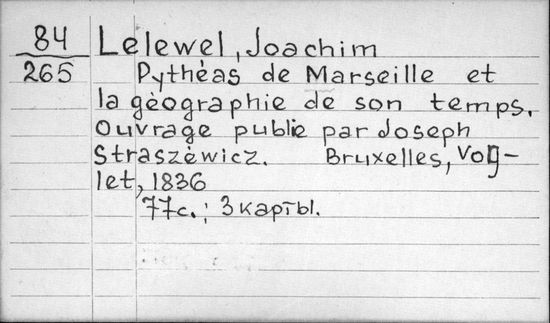 84 Lelewel, Joachim
265 Pythéas de Marseille et
la géographie de son temps.
Ouvrage publié par Joseph
Straszéwicz. Bruxelles, Vog-
let, 1836
77с.; 3 карты.